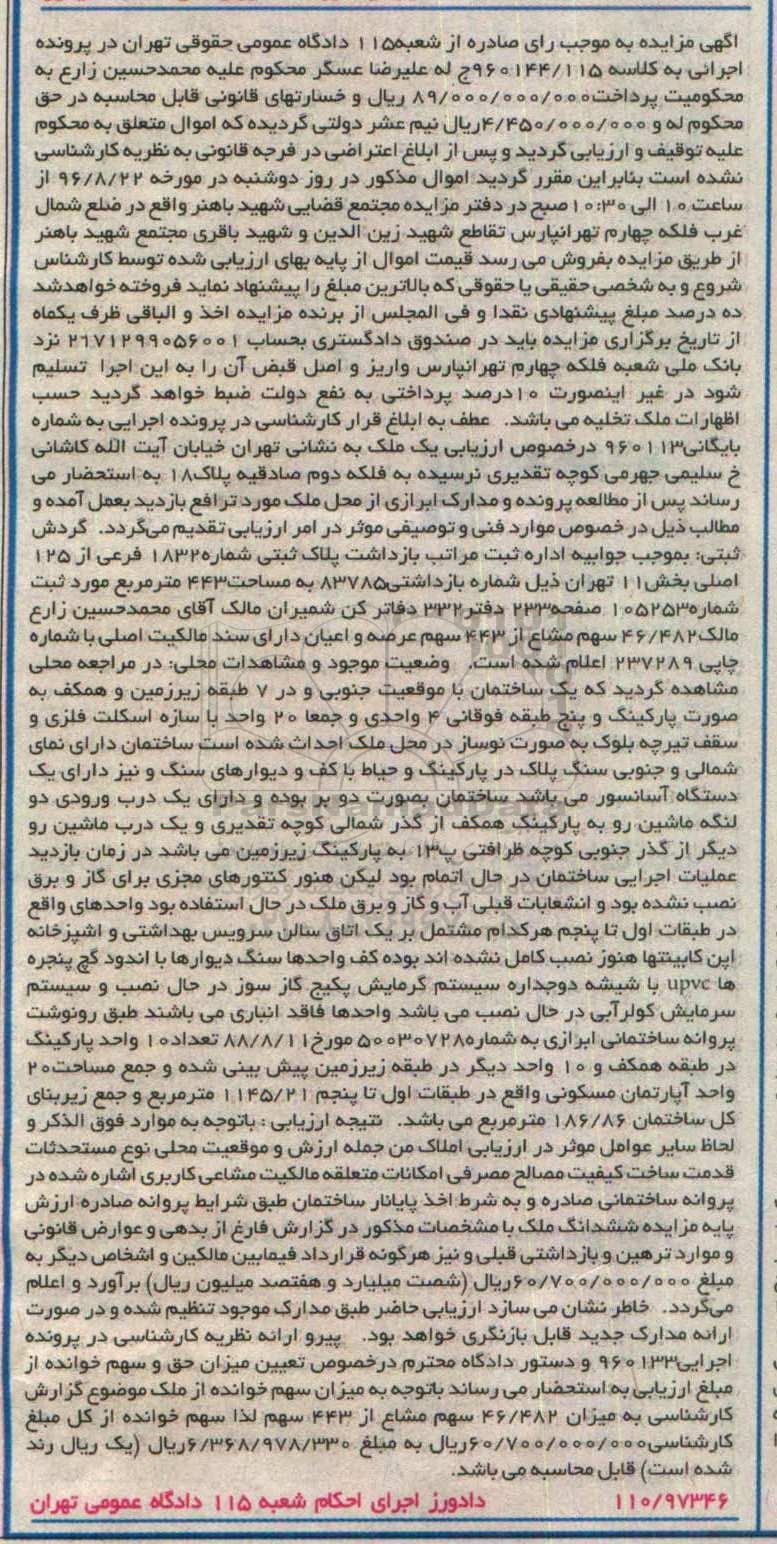 اگهی مزایده به موجب رای صادره از شعبه۱۱۵ دادگاه عمومی حقوقی تهران در پرونده
اجرائی به کلاسه ۹۶۰۱۴۴/۱۱۵ج له علیرضا عسگر محکوم علیه محمدحسین زارع به
محکومیت پرداخت۸۹/۰۰۰/۰۰۰/۰۰۰ ریال و خسارتهای قانونی قابل محاسبه در حق
محکوم له و ۴/۴۵۰/۰۰۰/۰۰۰ریال نیم عشر دولتی گردیده که اموال متعلق به محکوم
علیه توقیف و ارزیابی گردید و پس از ابلاغ اعتراضی در فرجه قانونی به نظریه کارشناسی
نشده است بنابراین مقرر گردید اموال مذکور در روز دوشنبه در مورخه ۹۶/۸/۲۲ از
ساعت ۱۰ الی ۱۰:۳۰صبح در دفتر مزایده مجتمع قضایی شهید باهنر واقع در ضلع شمال
غرب فلکه چهارم تهرانپارس تقاطع شهید زین الدین و شهید باقری مجتمع شهید باهنر
از طریق مزایده بفروش می رسد قیمت اموال از پایه بهای ارزیابی شده توسط کارشناس
شروع و به شخصی حقیقی یا حقوقی که بالاترین مبلغ را پیشنهاد نماید فروخته خواهدشد
ده درصد مبلغ پیشنهادی نقدا و فی المجلس از برنده مزایده اخذ و الباقی ظرف یکماه
از تاریخ برگزاری مزایده باید در صندوق دادگستری بحساب ۲۱۷۱۲۹۹۰۵۶۰۰۱ نزد
بانک ملی شعبه فلکه چهارم تهرانپارس واریز و اصل قبض آن را به این اجرا تسلیم
شود در غیر اینصورت ۱۰درصد پرداختی به نفع دولت ضبط خواهد گردید حسب
اظهارات ملک تخلیه می باشد. عطف به ابلاغ قرار کارشناسی در پرونده اجرایی به شماره
بایگانی۹۶۰۱۱۳ درخصوص ارزیابی یک ملک به نشانی تهران خیابان آیت الله کاشانی
خ سلیمی جهرمی کوچه تقدیری نرسیده به فلکه دوم صادقیه پلاک۱۸ به استحضار می
رساند پس از مطالعه پرونده و مدارک ابرازی از محل ملک مورد ترافع بازدید بعمل آمده و
مطالب ذیل در خصوص موارد فنی و توصیفی موثر در امر ارزیابی تقدیم می‌گردد. گردش
ثبتی: بموجب جوابیه اداره ثبت مراتب بازداشت پلاک ثبتی شماره۱۸۳۲ فرعی از ۱۲۵
اصلی بخش۱۱ تهران ذیل شماره بازداشتی۸۳۷۸۵ به مساحت۴۴۳ مترمربع مورد ثبت
شماره۱۰۵۲۵۳ صفحه۲۳۳ دفتر۳۳۲ دفاتر کن شمیران مالک آقای محمدحسین زارع
مالک۴۶/۴۸۲ سهم مشاع از ۴۴۳ سهم عرصه و اعیان دارای سند مالکیت اصلی با شماره
چاپی ۲۳۷۲۸۹ اعلام شده است. وضعیت موجود و مشاهدات محلی: در مراجعه محلی
مشاهده گردید که یک ساختمان با موقعیت جنوبی و در ۷ طبقه زیرزمین و همکف به
صورت پارکینگ و پنج طبقه فوقانی ۴ واحدی و جمعا ۲۰ واحد با سازه اسکلت فلزی و
سقف تیرچه بلوک به صورت نوساز در محل ملک احداث شده است ساختمان دارای نمای
شمالی و جنوبی سنگ پلاک در پارکینگ و حیاط با کف و دیوارهای سنگ و نیز دارای یک
دستگاه آسانسور می باشد ساختمان بصورت دو بر بوده و دارای یک درب ورودی دو
لنگه ماشین رو به پارکینگ همکف از گذر شمالی کوچه تقدیری و یک درب ماشین رو
دیگر از گذر جنوبی کوچه ظرافتی پ۱۳ به پارکینگ زیرزمین می باشد در زمان بازدید
عملیات اجرایی ساختمان در حال اتمام بود لیکن هنور کنتورهای مجزی برای گاز و برق
نصب نشده بود و انشعابات قبلی آب و گاز و برق ملک در حال استفاده بود واحدهای واقع
در طبقات اول تا پنجم هرکدام مشتمل بر یک اتاق سالن سرویس بهداشتی و اشپزخانه
اپن کابینتها هنوز نصب کامل نشده اند بوده کف واحدها سنگ دیوارها با اندود گچ پنجره
ها upvc با شیشه دوجداره سیستم گرمایش پکیج گاز سوز در حال نصب و سیستم
سرمایش کولرآبی در حال نصب می باشد واحدها فاقد انباری می باشند طبق رونوشت
پروانه ساختمانی ابرازی به شماره۵۰۰۳۰۷۲۸ مورخ۸۸/۸/۱۱ تعداد۱۰ واحد پارکینگ
در طبقه همکف و ۱۰ واحد دیگر در طبقه زیرزمین پیش بینی شده و جمع مساحت۲۰
واحد آپارتمان مسکونی واقع در طبقات اول تا پنجم ۱۱۴۵/۲۱ مترمربع و جمع زیربنای
کل ساختمان ۱۸۶/۸۶ مترمربع می باشد. نتیجه ارزیابی : باتوجه به موارد فوق الذکر و
لحاظ سایر عوامل موثر در ارزیابی املاک من جمله ارزش و موقعیت محلی نوع مستحدثات
قدمت ساخت کیفیت مصالح مصرفی امکانات متعلقه مالکیت مشاعی کاربری اشاره شده در
پروانه ساختمانی صادره و به شرط اخذ پایانار ساختمان طبق شرایط پروانه صادره ارزش
پایه مزایده ششدانگ ملک با مشخصات مذکور در گزارش فارغ از بدهی و عوارض قانونی
و موارد ترهین و بازداشتی قبلی و نیز هرگونه قرارداد فیمابین مالکین و اشخاص دیگر به
مبلغ ۶۰/۷۰۰/۰۰۰/۰۰۰ریال (شصت میلیارد و هفتصد میلیون ریال) برآورد و اعلام
می‌گردد. خاطر نشان می سازد ارزیابی حاضر طبق مدارک موجود تنظیم شده و در صورت
ارائه مدارک جدید قابل بازنگری خواهد بود. پیرو ارائه نظریه کارشناسی در پرونده
اجرایی۹۶۰۱۳۳ و دستور دادگاه محترم درخصوص تعیین میزان حق و سهم خوانده از
مبلغ ارزیابی به استحضار می رساند باتوجه به میزان سهم خوانده از ملک موضوع گزارش
کارشناسی به میزان ۴۶/۴۸۲ سهم مشاع از ۴۴۳ سهم لذا سهم خوانده از کل مبلغ
کارشناسی۶۰/۷۰۰/۰۰۰/۰۰۰ریال به مبلغ ۶/۳۶۸/۹۷۸/۳۳۰ریال (یک ریال رند
شده است) قابل محاسبه می باشد.
۱۱۰/۹۷۳۴۶ دادورز اجرای احکام شعبه ۱۱۵ دادگاه عمومی تهران